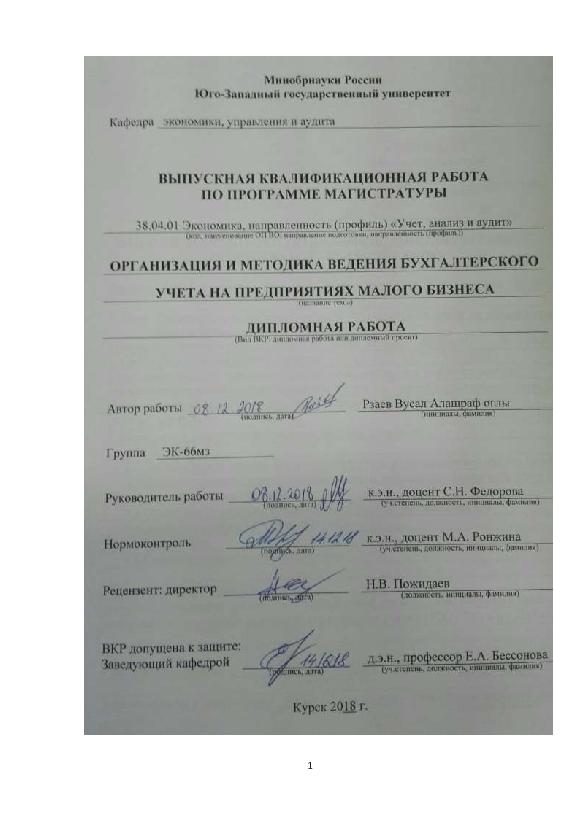 Минобрнауки России
Юго-Западный государственный университет
Кафедра экономики, управления и аудита
ВЫПУСКНАЯ КВАЛИФИКАЦИОННАЯ РАБОТА
ПО ПРОГРАММЕ МАГИСТРАТУРЫ
38.04.01 Экономика, направленность (профиль) «Учет, анализ и аудит»
(код, наименование ОП ВО: направление подготовки, направленность (профиль))
ОРГАНИЗАЦИЯ И МЕТОДИКА ВЕДЕНИЯ БУХГАЛТЕРСКОГО
УЧЕТА НА ПРЕДПРИЯТИЯХ МАЛОГО БИЗНЕСА
(название темы)
ДИПЛОМНАЯ РАБОТА
(Вид ВКР: дипломная работа или дипломный проект)
Автор работы 08.12.2018 Рзаев Вусал Алашраф оглы
(подпись, дата) (инициалы, фамилия)
Группа ЭК-66мз
Руководитель работы 08.12.2018 к.э.н., доцент С.Н. Федорова
(подпись, дата) (уч.степень, должность, инициалы, фамилия)
Нормоконтроль 14.12.18 к.э.н., доцент М.А. Ронжина
(подпись, дата) (уч.степень, должность, инициалы, фамилия)
Рецензент: директор Н.В. Пожидаев
(подпись, дата) (должность, инициалы, фамилия)
ВКР допущена к защите:
Заведующий кафедрой д.э.н., профессор Е.А. Бессонова
(подпись, дата) (уч.степень, должность, инициалы, фамилия)
Курск 2018 г.
1